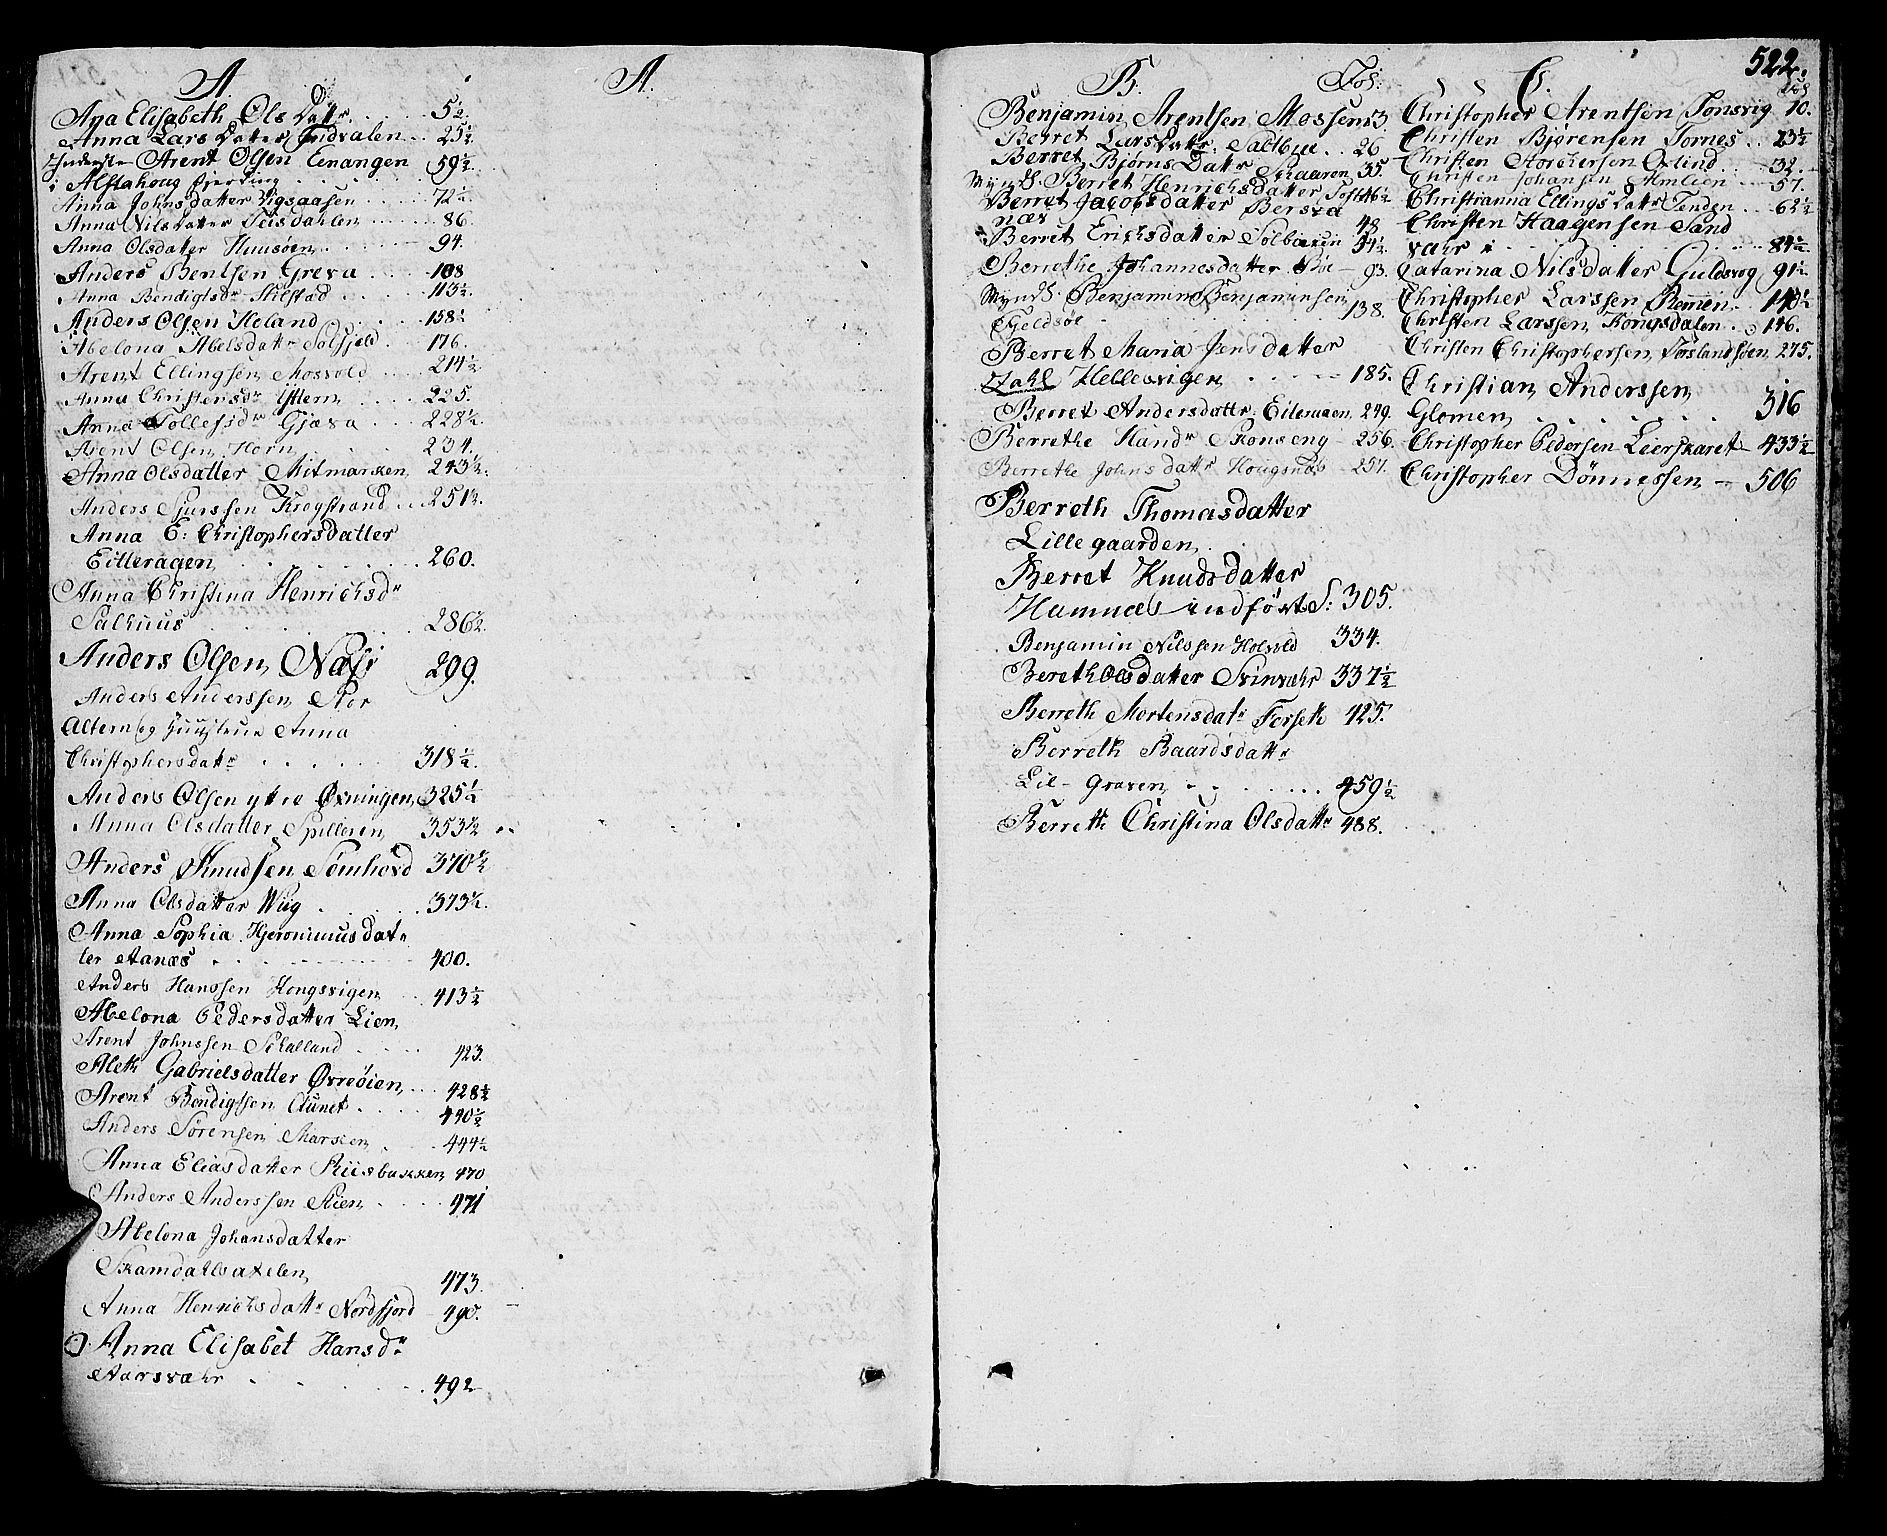 A.
Ana Elisabeth Ols Datr. 5½.
Anna Lars Datter Indvalen 25½
Inderste Arent Olsen Lenangen 59½
i Alstahoug fjerding
Anna Johnsdatter Vigsaasen 72½
Anna Nilsdatter Teisdahlen 86.
Anna Olsdatter Huusøen 94.
Anders Bentsen Greva 108
Anna Bendigtsdr Stilstad 113½.
Anders Olsen Holand 158½
Abelona Abelsdatr Solfjeld 176.
Arent Ellingsen Mosvold 214½
Anna Christensdr Yttern 225.
Anna Tollefsdr Gjæva 228½.
Arent Olsen Horn 234.
Anna Olsdatter Mitmarken 243½.
Anders Sjurssen Krogstrand 251½.
Anna E: Christophersdatter
Eitteragen 260.
Anna Christina Henrichsdr
Salhuus 286½
Anders Olsen Næss 299.
Anders Anderssen Stor
Altern og Hustrue Anna
Christophersdatr 318½.
Anders Olsen ytre Øxningen 325½
Anna Olsdatter Spilleren 353½
Anders Knudsen Sømhovd 370½
Anna Olsdatter Wiig 373½.
Anna Sophia Hjeronimus dat-
ter Aanæs 400.
Anders Hanssen Kongsvigen 413½
Abelona Pedersdatter Lien
Arent Johnssen Schalland 423.
Aleth Gabrielsdatter Øvreøien 428½
Arent Bendigtsen Aunet 440½
Anders Sørensen Marken 444½
Anna Eliasdatter Riisbakken 470
Anders Anderssen Stien 471
Abelona Johansdatter
Skamdahlsaxelen 473.
Anna Henrichsdatr Nordfjord 490.
Anna Elisabet Hansdr
Aarsvahr 492
A.
B. Fol:
Benjamin Arentsen Mossen 23.
Berret Larsdatr. Saltbue 26
Berret Bjørns Datr Skaaren 35.
Mynd. Berret Henrichsdatter Toft 46½
Berret Jacobsdatter Bersva
næs 48
Berret Erichsdatter Solbaken 54½.
Berrethe Johannesdatter Bøe 93.
Mynd. Benjamin Benjaminsen
Fjeldsøe 138.
Berret Maria Jensdatter
Zahl Hellesvigen 185.
Berret Andersdatter Eiteraaen 249.
Berrethe Hansdr Skonseng 256.
Berrethe Johnsdatr Hougsnæs 257.
Berreth Thomasdatter
Lillegaarden
Berret Knudsdatter
Hamnæs indført S: 305.
Benjamin Nilssen Holvold 334.
Bereth Olsdatter Svinvahr 337½
Berreth Mortensdatr Forseth 425.
Berreth Baardsdatr
Lil-Graven 459½
Berreth Christina Olsdatr 488.
522.
C. Fol
Christopher Arentsen Tonsvig 10.
Christen Bjørensen Tornes 23½
Christen Aschersen Oxlind 32.
Christen Johansen Almlien 57.
Christianna Ellings Datr Tenden 62½
Christen Haagensen Sand
vahr 84½
Catarina Nilsdatter Guldsvog 91½
Christopher Larssen Remen 140½
Christen Larssen Kongsdalen 146.
Christen Christophersen Forslandssøen 275.
Christian Anderssen
Glomen 316
Christopher Pedersen Leerskaret 433½
Christopher Dønnessen 506